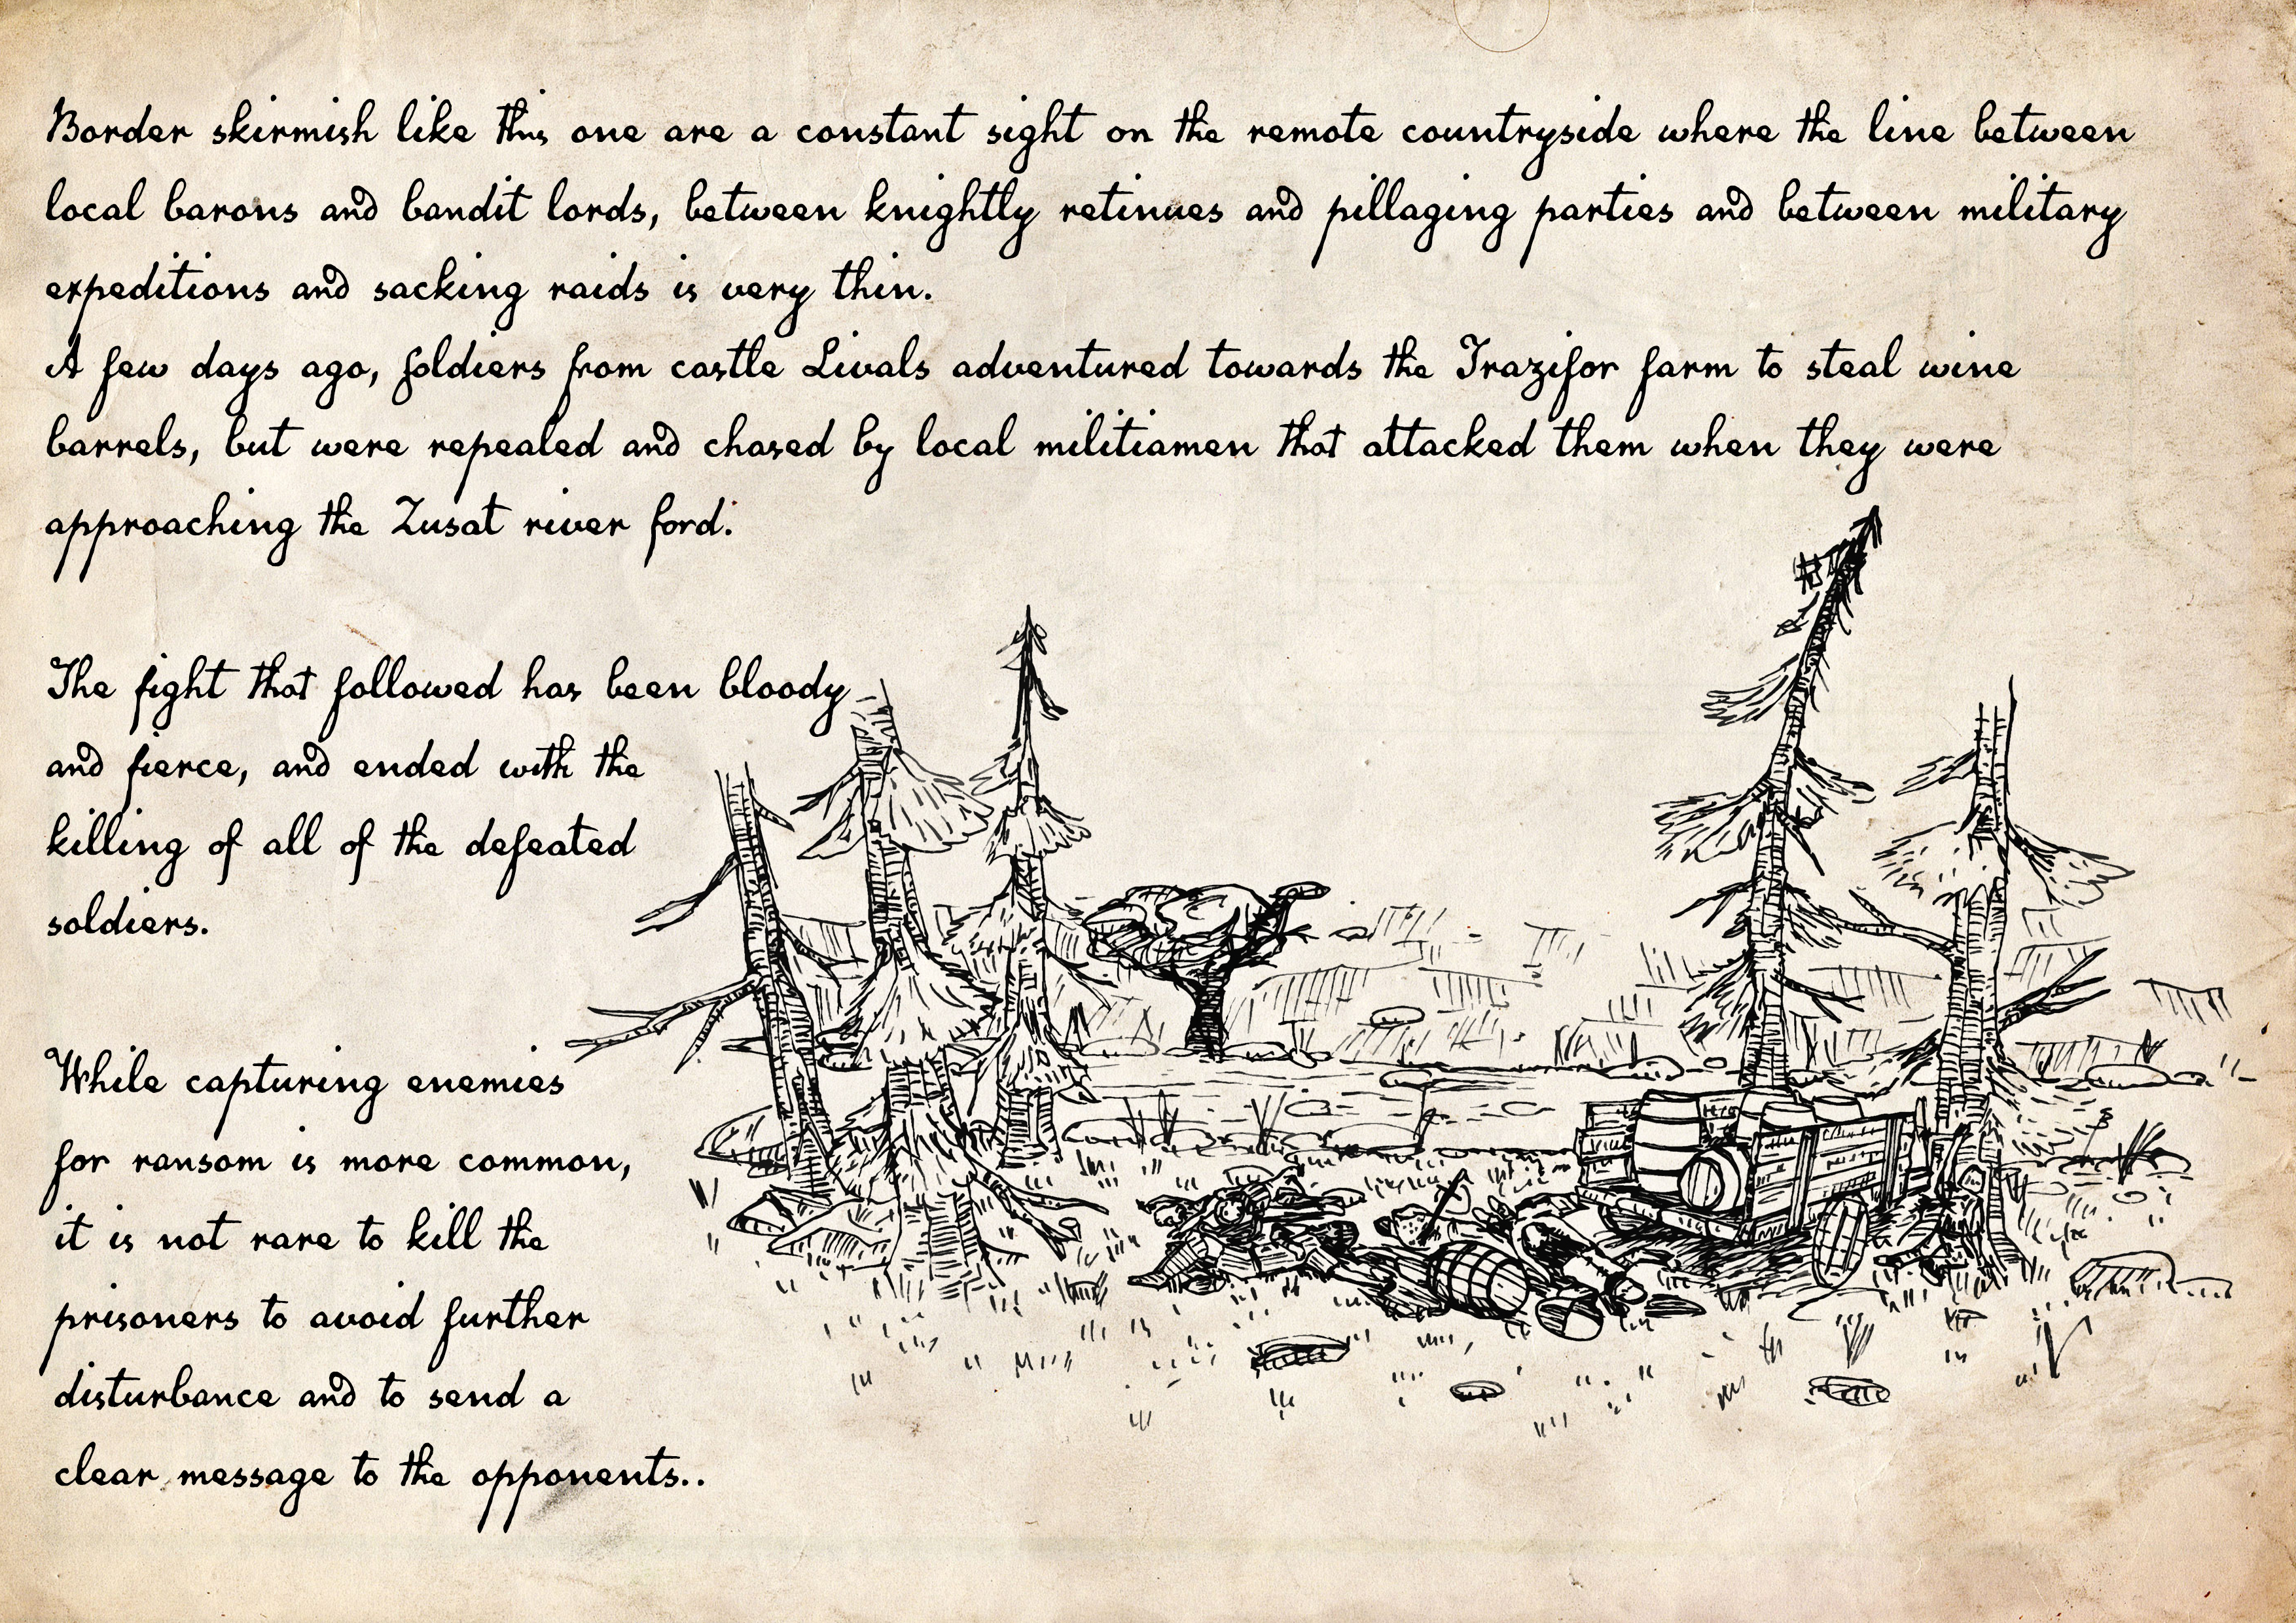 Border skirmish like this one are a constant sight on the remote countryside where the line between
local barons and bandit lords, between knightly retinues and pillaging parties and between military
expeditions and sacking raids is very thin.
A few days ago, soldiers from castle Livals adventured towards the Trazifor farm to steal wine
barrels, but were repealed and chased by local militiamen that attacked them when they were
approaching the Zusat river ford.
The fight that followed has been bloody
and fierce, and ended with the
killing of all of the defeated
soldiers.
While capturing enemies
for ransom is more common,
it is not rare to kill the
prisoners to avoid further
disturbance and to send a
clear message to the opponents..